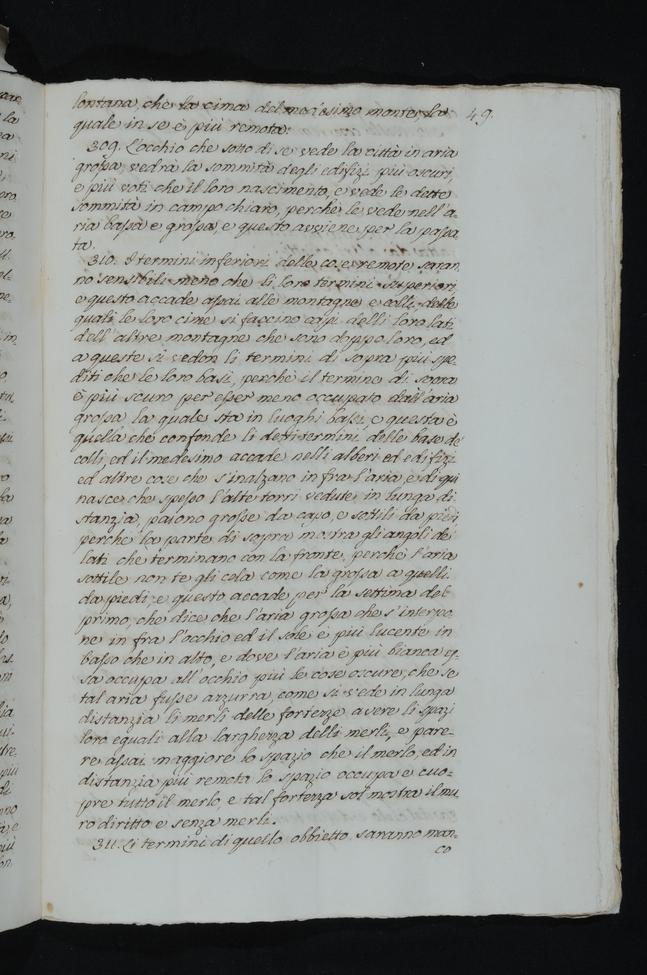 49.
lontana, che la cima del medesimo monte, la
quale in se è più remota.
309. L'occhio che sotto di se vede la città in aria
grossa, vedrà la sommità degli edifizi più oscuri,
e più noti che il loro nascimento, e vede le dette
sommità in campo chiaro, perchè le vede nell'a-
ria bassa e grossa, e questo avviene per la passa
ta.
310. I termini inferiori delle cose remote saran
no sensibili meno che li loro termini superiori,
e questo accade assai alle montagne e colli, delle
quali le loro cime si faccino capi delli loro lati
dell'altre montagne che sono doppo loro, ed
a queste si vedon li termini di sopra più spe-
diti che le loro basi, perchè il termine di sopra
è più scuro per esser meno occupato dall'aria
grossa la quale sta in luoghi bassi, e questa è
quella che confonde li detti termini delle base de'
colli, ed il medesimo accade nelli alberi ed edifizi
ed altre cose che s'inalzano infra l'aria, e di qui
nasce che spesso l'alte torri vedute in lunga di
stanzia, paiono grosse da capo, e sottili da piedi,
perchè la parte di sopra mostra gli angoli de'
lati che terminano con la fronte, perchè l'aria
sottile non te gli cela come la grossa a quelli
da piedi, e questo accade per la settima del
primo, che dice che l'aria grossa che s'interpo
ne in fra l'occhio ed il sole è più lucente in
basso che in alto, e dove l'aria è più bianca es
sa occupa all'occhio più le cose oscure, che se
tal aria fusse azzurra, come si vede in lunga
distanzia li merli delle fortezze avere li spazi
loro eguali alla larghezza delli merli, e pare-
re assai maggiore lo spazio che il merlo, ed in
distanzia più remota lo spazio occupa e cuo-
pre tutto il merlo, e tal fortezza sol mostra il mu
ro diritto e senza merli.
311. Li termini di quello obbietto saranno man
co